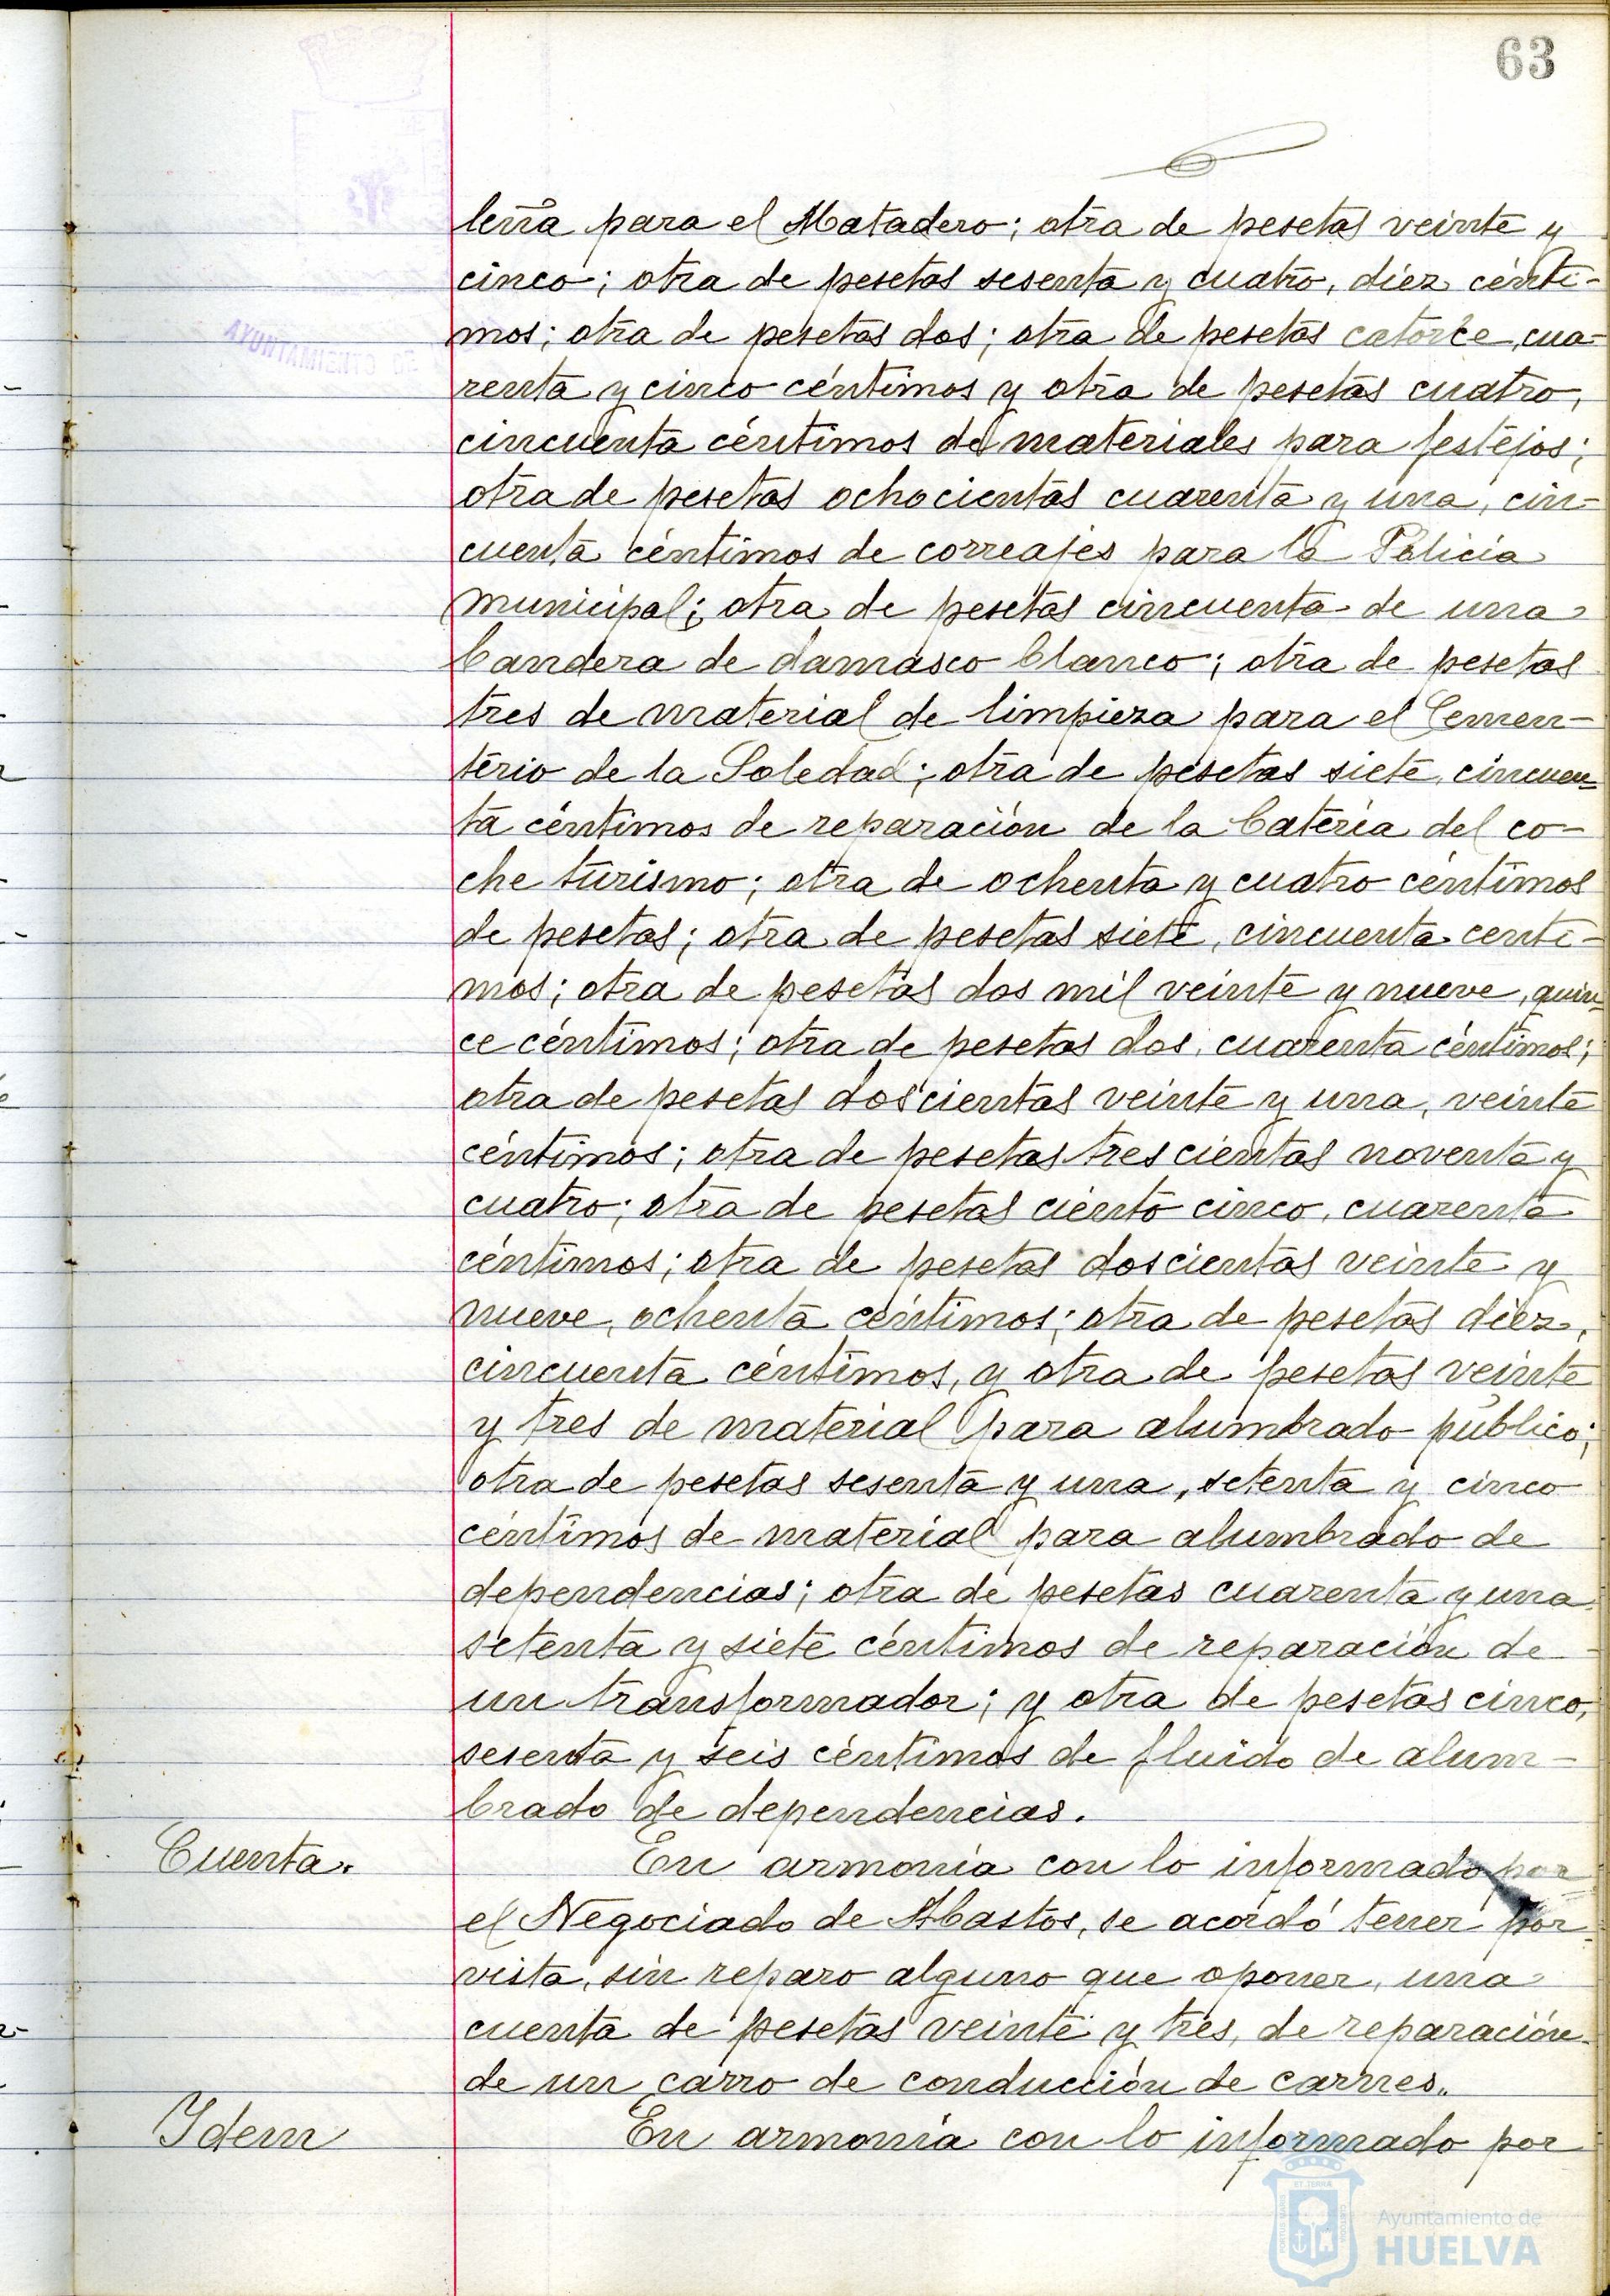 63
leña para el Matadero; otra de pesetas veinte y
cinco; otra de pesetas sesenta y cuatro, diez cénti-
mos; otra de pesetas dos; otra de pesetas catorce, cua-
renta y cinco céntimos y otra de pesetas cuatro,
cincuenta céntimos de materiales para festejos;
otra de pesetas ochocientas cuarenta y una, cin-
cuenta céntimos de correajes para la Policía
municipal; otra de pesetas cincuenta de una
bandera de damasco blanco; otra de pesetas
tres de material de limpieza para el Cemen-
terio de la Soledad; otra de pesetas siete, cincuen-
ta céntimos de reparación de la batería del co-
che turismo; otra de ochenta y cuatro céntimos
de pesetas; otra de pesetas siete, cincuenta centi-
mos; otra de pesetas dos mil veinte y nueve, quin-
ce céntimos; otra de pesetas dos, cuarenta céntimos;
otra de pesetas doscientas veinte y una, veinte
céntimos; otra de pesetas trescientas noventa y
cuatro; otra de pesetas ciento cinco, cuarenta
céntimos; otra de pesetas doscientas veinte y
nueve, ochenta céntimos; otra de pesetas diez,
cincuenta céntimos, y otra de pesetas veinte
y tres de material para alumbrado público;
otra de pesetas sesenta y una, setenta y cinco
céntimos de material para alumbrado de
dependencias; otra de pesetas cuarenta y una
setenta y siete céntimos de reparación de
un transformador; y otra de pesetas cinco,
sesenta y seis céntimos de fluido de alum-
brado de dependencias.
Cuenta. En armonía con lo informado por
el Negociado de Abastos, se acordó tener por
vista, sin reparo alguno que oponer, una
cuenta de pesetas veinte y tres, de reparación
de un carro de conducción de carnes.
Idem En armonía con lo informado por
AYUNTAMIENTO DE
Ayuntamiento de
HUELVA